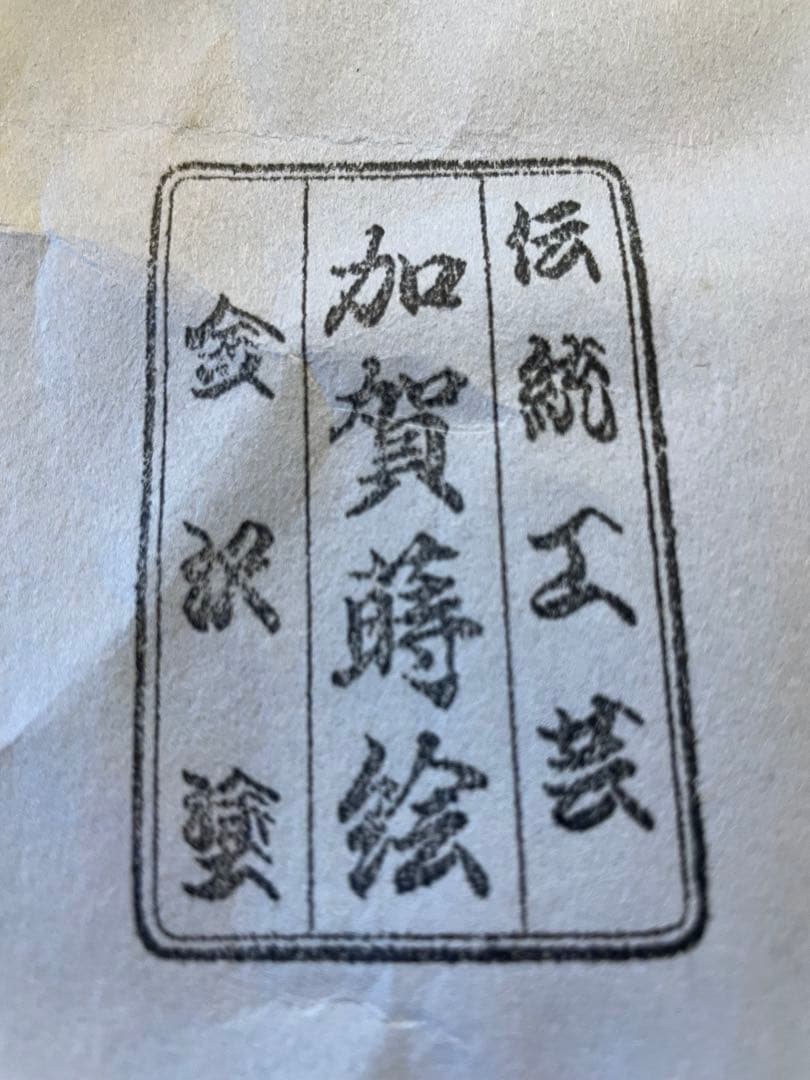 伝統工芸
加賀蒔絵
金沢塗